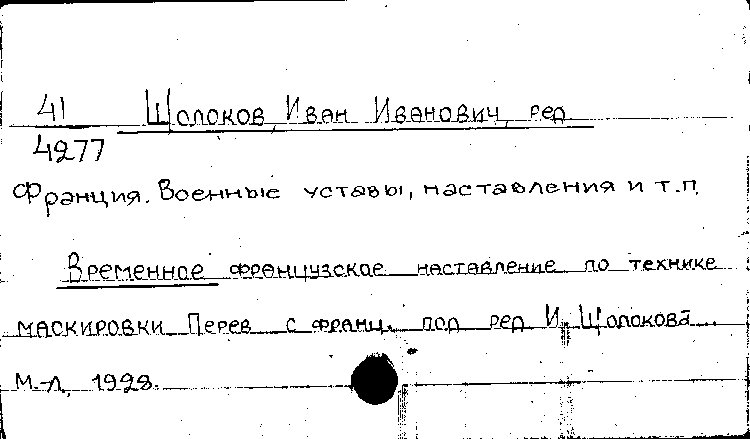 41 Щолоков, Иван Иванович, ред
4277
Франция. Военные уставы, наставления и т.п.
Временное французское наставление по технике
маскировки. Перев с франц. под ред И. Щолокова...
М.-Л, 1928.